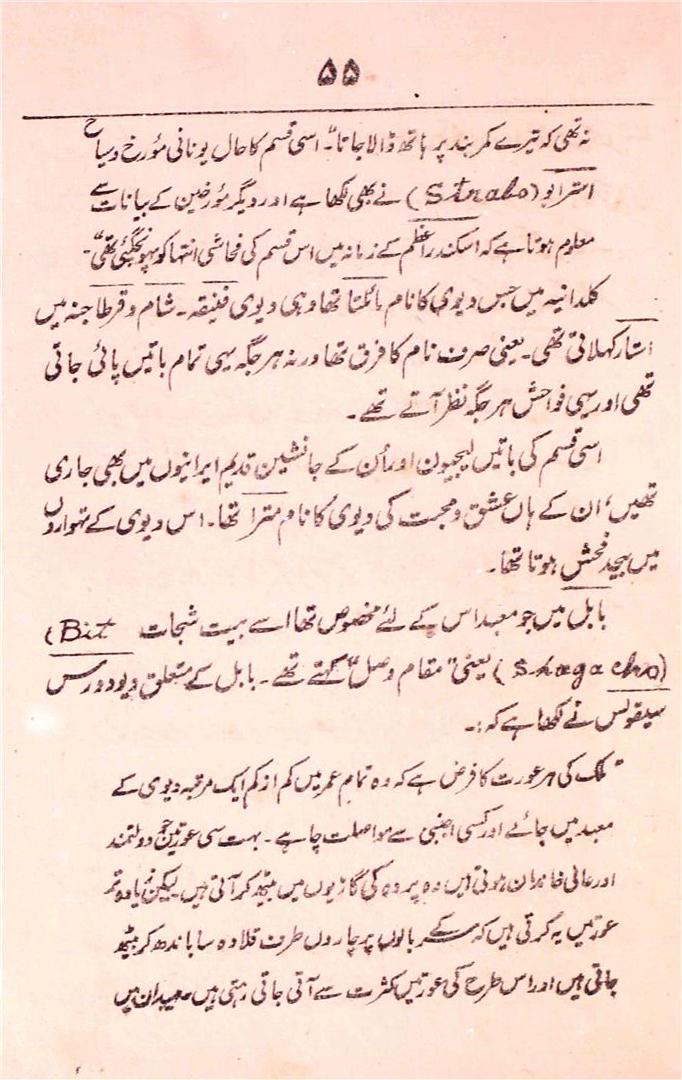 ۵۵
نہ تھی کہ تیرے کمر بند پر ہاتھ ڈالا جاتا"۔ اسی قسم کا حال یونانی مؤرخ و سیاح
استرابو (Strabo) نے بھی لکھا ہے اور دیگر مؤرخین کے بیانات سے
معلوم ہوتا ہے کہ اسکندر اعظم کے زمانہ میں اس قسم کی فحاشی انتہا کو پہونچ گئی تھی۔
کلدانیہ میں جس دیوی کا نام مائلتا تھا وہی دیوی فنیقہ۔ شام و قرطاجنہ میں
استار کہلاتی تھی۔ یعنی صرف نام کا فرق تھا ورنہ ہر جگہ یہی تمام باتیں پائی جاتی
تھی اور یہی فواحش ہر جگہ نظر آتے تھے۔
اسی قسم کی باتیں لیجیون اور اُن کے جانشین قدیم ایرانیوں میں بھی جاری
تھیں، ان کے ہاں عشق و محبت کی دیوی کا نام مترا تھا۔ اس دیوی کے تہواروں
میں بیحد فحش ہوتا تھا۔
بابل میں جو معبد اس کے لئے مخصوص تھا اسے بیت شجات (Bit
Shagacho) یعنی "مقام وصل" کہتے تھے۔ بابل کے متعلق دیودورس
سیقولس نے لکھا ہے کہ:۔
"ملک کی ہر عورت کا فرض ہے کہ وہ تمام عمر میں کم از کم ایک مرتبہ دیوی کے
معبد میں جائے اور کسی اجنبی سے مواصلت چاہے۔ بہت سی عورتیں جو دولتمند
اور عالی خاندان ہوتی ہیں وہ پردہ کی گاڑیوں میں بیٹھ کر آتی ہیں۔ لیکن زیادہ تر
عورتیں یہ کرتی ہیں کہ سر کے بالوں پر چاروں طرف قلادہ سا باندھ کر بیٹھ
جاتی ہیں اور اس طرح کی عورتیں کثرت سے آتی جاتی رہتی ہیں۔ میدان میں